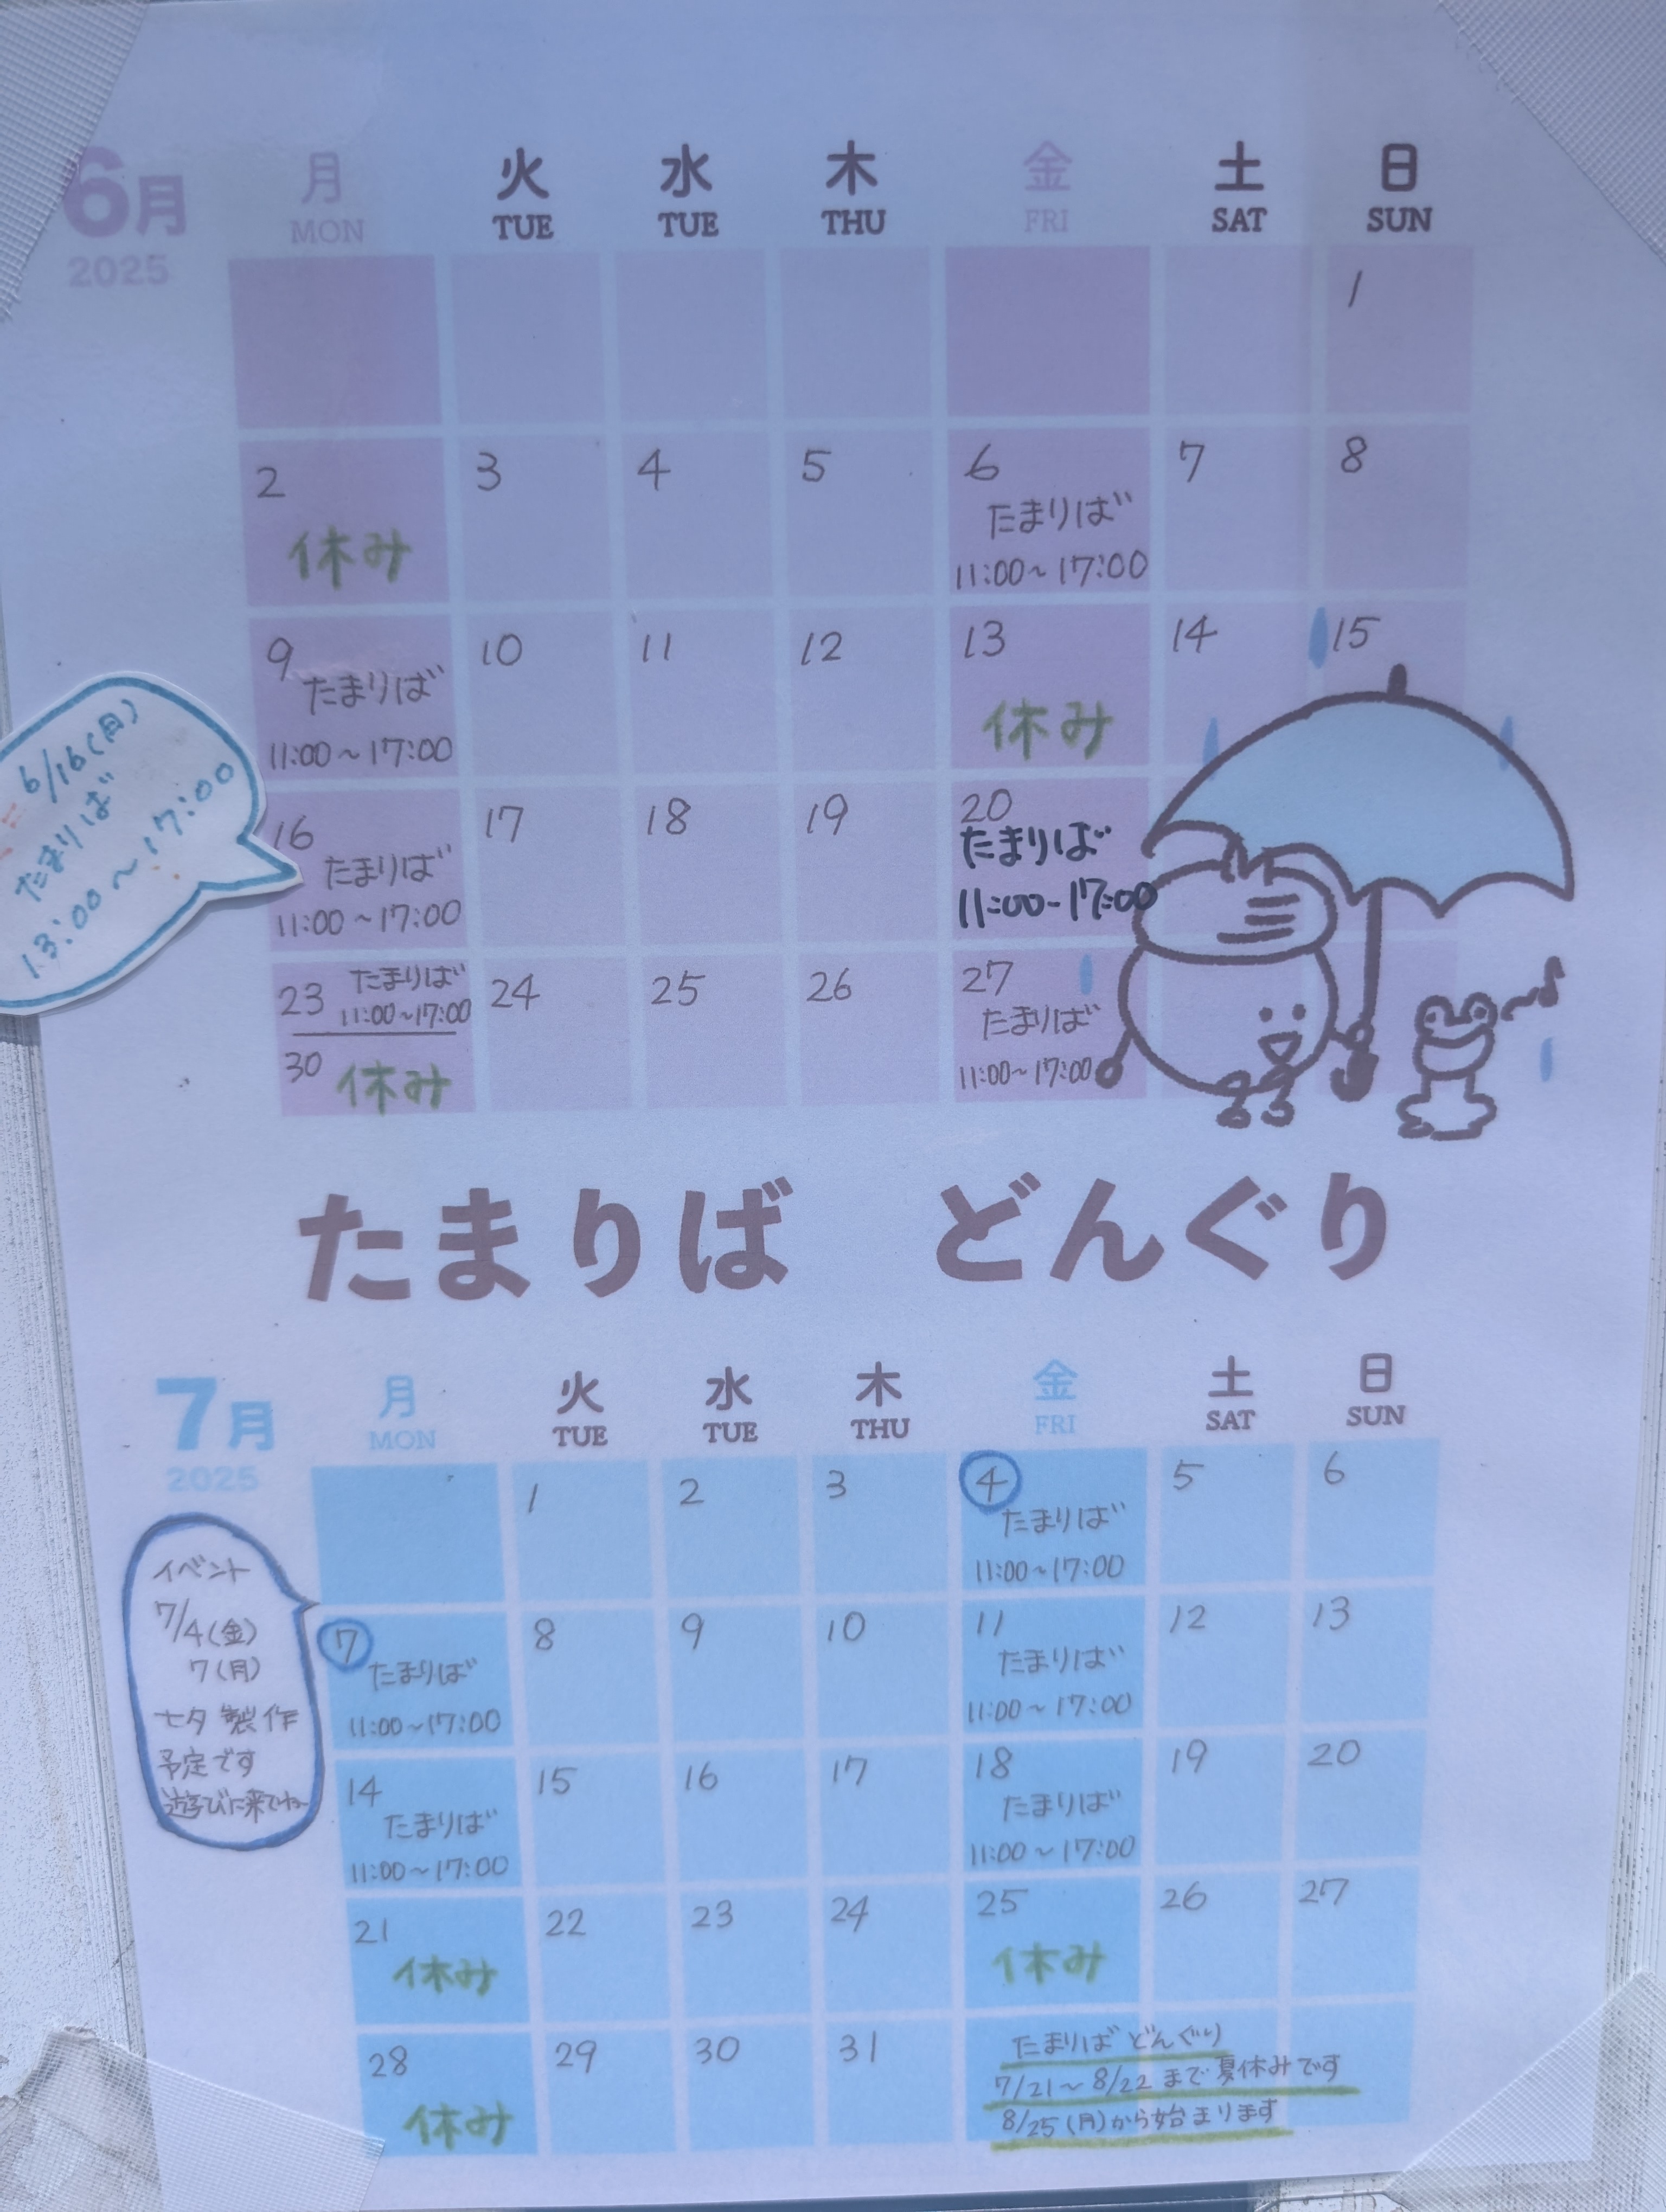 6月
2025
月 火 水 木 金 土 日
MON TUE TUE THU FRI SAT SUN
1
2 3 4 5 6 7 8
休み
たまりば
11:00～17:00
9 10 11 12 13 14 15
たまりば
11:00～17:00
休み
6/16(月)
たまりば
13:00～17:00
16 17 18 19 20
たまりば
11:00～17:00
たまりば
11:00-17:00
23 24 25 26 27
たまりば
11:00～17:00
30
休み
たまりば
11:00～17:00
たまりば どんぐり
7月
2025
月 火 水 木 金 土 日
MON TUE TUE THU FRI SAT SUN
1 2 3 4 5 6
たまりば
11:00～17:00
イベント
7/4(金)
7(月)
七夕製作
予定です
遊びに来てね
7 8 9 10 11 12 13
たまりば
11:00～17:00
たまりば
11:00～17:00
14 15 16 17 18 19 20
たまりば
11:00～17:00
たまりば
11:00～17:00
21 22 23 24 25 26 27
休み
休み
28 29 30 31
休み
たまりば どんぐり
7/21～8/22まで夏休みです
8/25(月)から始まります